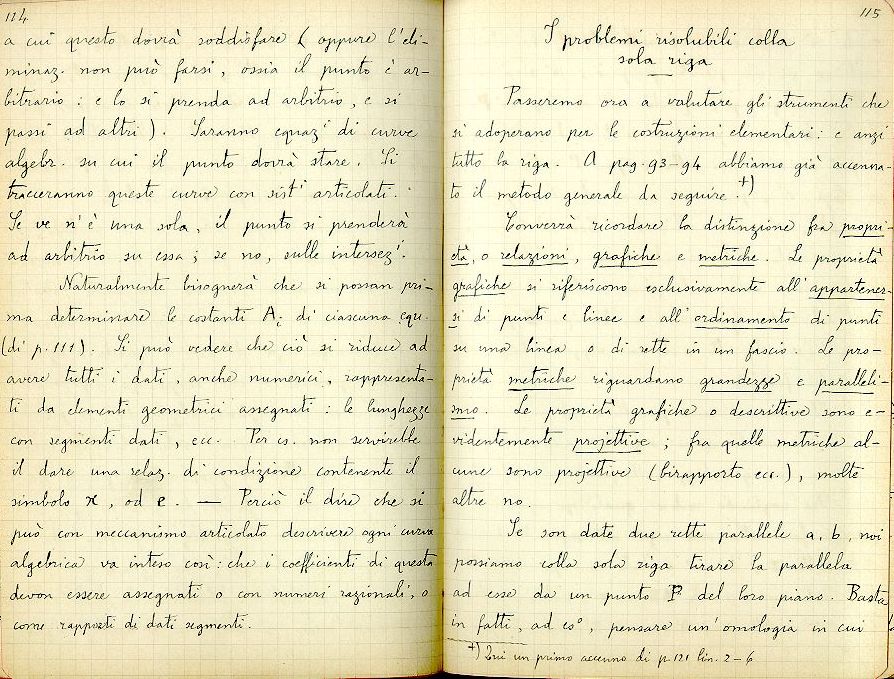 114
a cui questo dovrà soddisfare (oppure l'eli-
minaz. non può farsi, ossia il punto è ar-
bitrario: e lo si prenda ad arbitrio, e si
passi ad altri). Saranno equaz.i di curve
algebr. su cui il punto dovrà stare. Si
tracceranno queste curve con sist.i articolati.
Se ve n'è una sola, il punto si prenderà
ad arbitrio su essa; se no, sulle intersez.i.
Naturalmente bisognerà che si possan pri-
ma determinare le costanti Ai di ciascuna equ.
(di p. 111). Si può vedere che ciò si riduce ad
avere tutti i dati, anche numerici, rappresenta-
ti da elementi geometrici assegnati: le lunghezze
con segmenti dati, ecc. Per es. non servirebbe
il dare una relaz. di condizione contenente il
simbolo π, od e. — Perciò il dire che si
può con meccanismo articolato descrivere ogni curva
algebrica va inteso così: che i coefficienti di questa
devon essere assegnati o con numeri razionali, o
come rapporti di dati segmenti.
115
I problemi risolubili colla
sola riga
Passeremo ora a valutare gli strumenti che
si adoperano per le costruzioni elementari: e anzi
tutto la riga. A pag. 93-94 abbiamo già accenna-
to il metodo generale da seguire.+)
Converrà ricordare la distinzione fra propri-
età, o relazioni, grafiche e metriche. Le proprietà
grafiche si riferiscono esclusivamente all'appartener-
si di punti e linee e all'ordinamento di punti
su una linea o di rette in un fascio. Le pro-
prietà metriche riguardano grandezze e paralleli-
smo. Le proprietà grafiche o descrittive sono e-
videntemente projettive; fra quelle metriche al-
cune sono projettive (birapporto ecc.), molte
altre no.
Se son date due rette parallele a, b, noi
possiamo colla sola riga tirare la parallela
ad esse da un punto P del loro piano. Basta
in fatti, ad es.o, pensare un'omologia in cui
+) Qui un primo accenno di p. 121 lin. 2-6